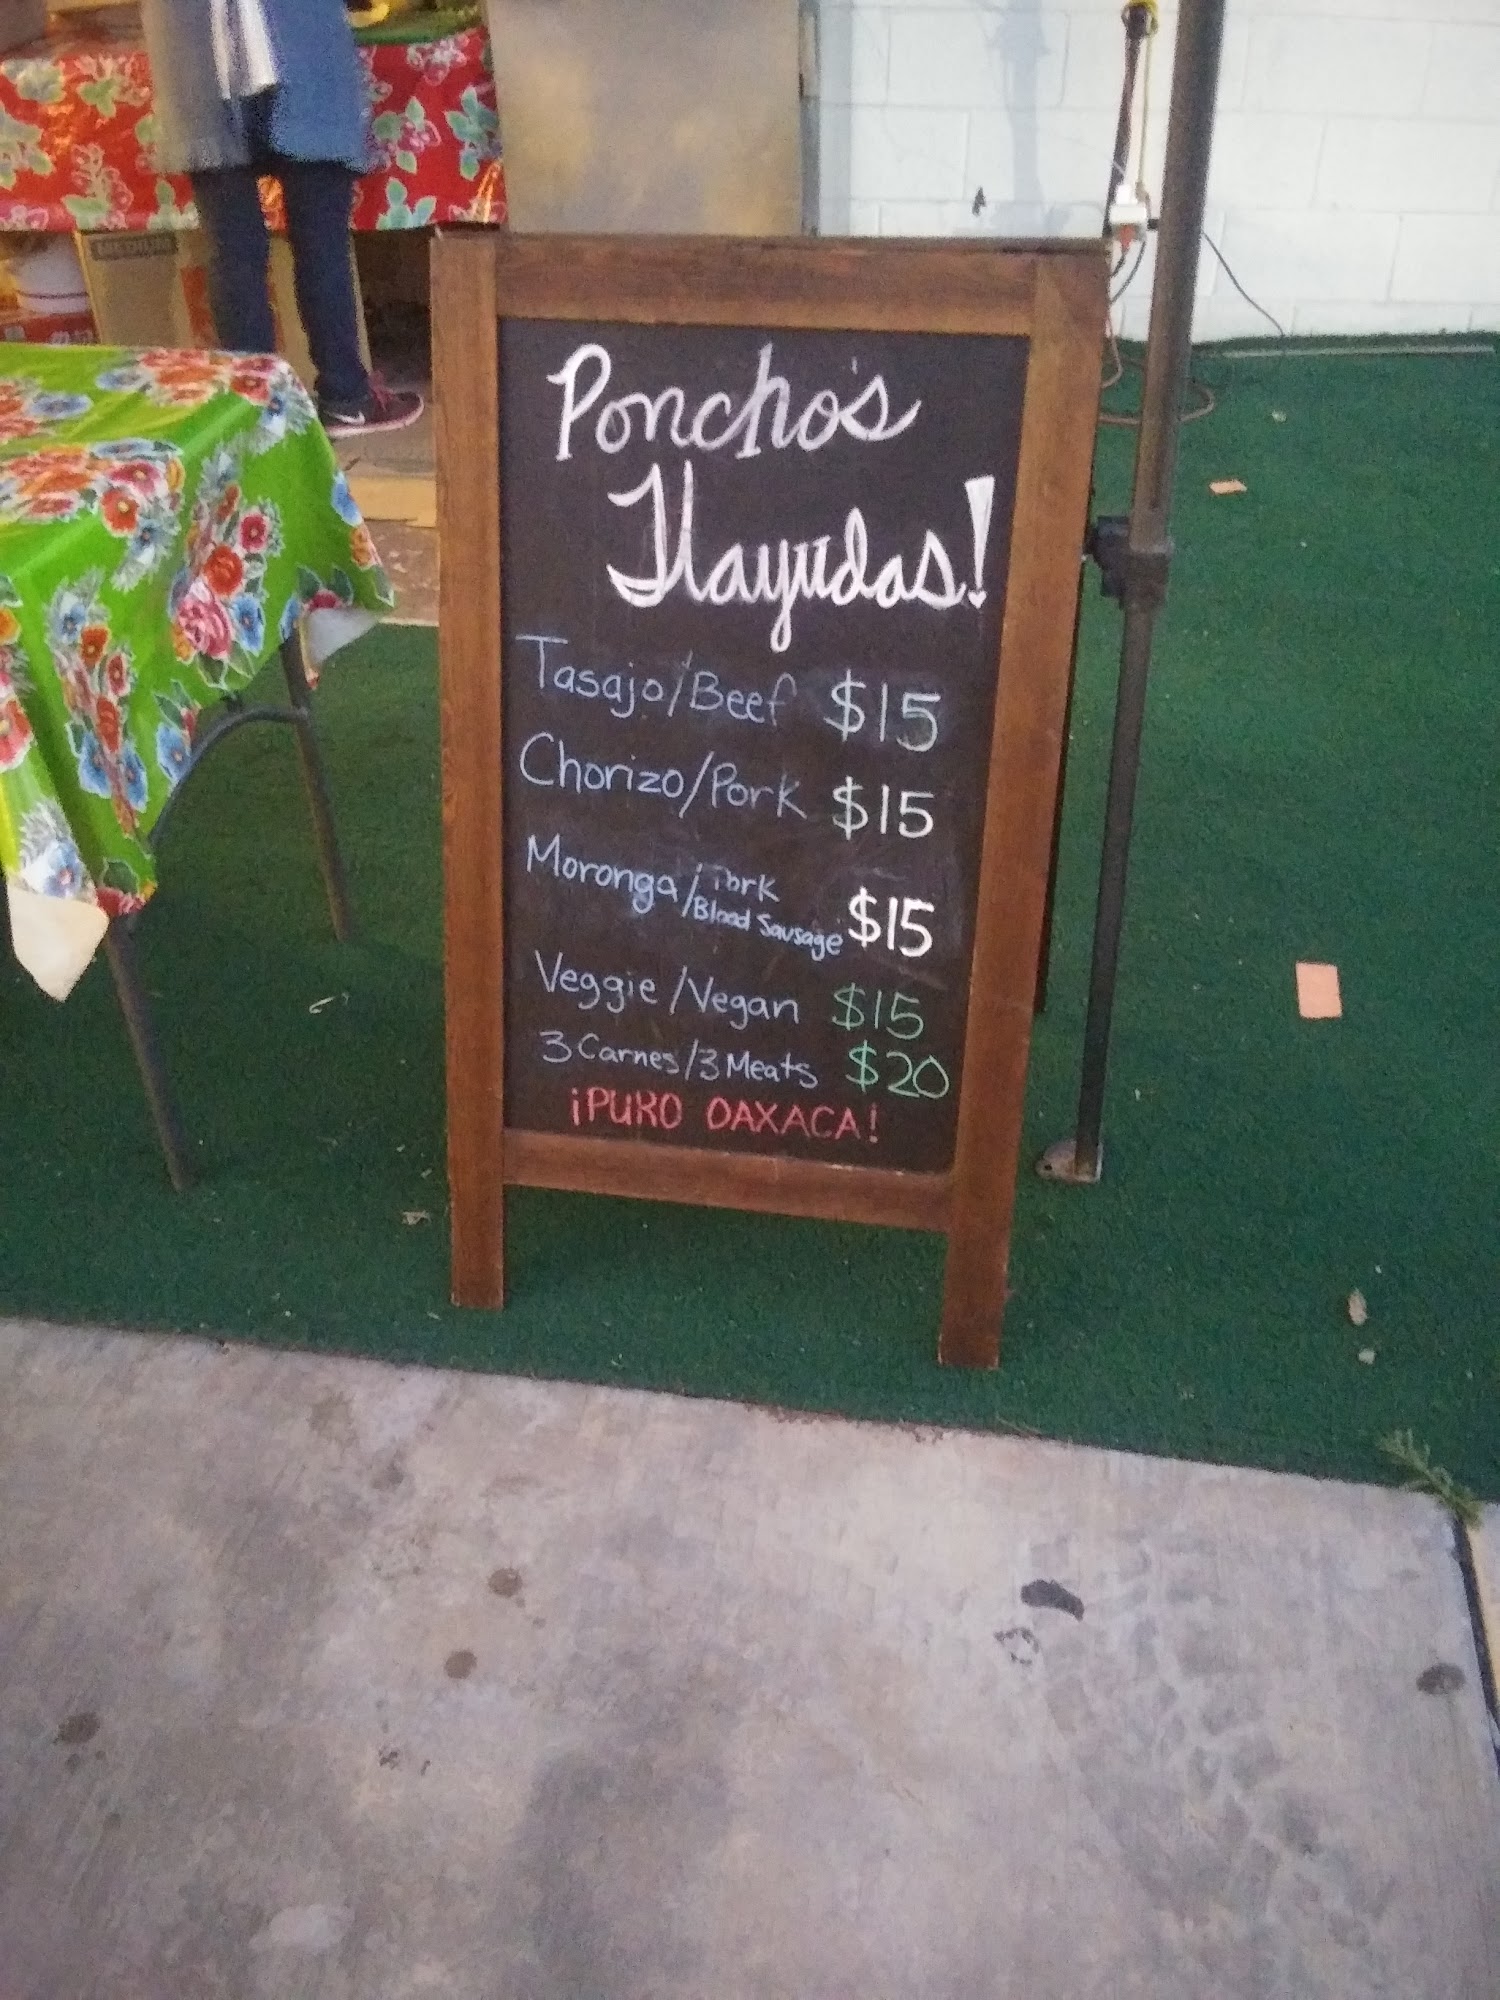 Poncho's
Tlayudas!
Tasajo/Beef $15
Chorizo/Pork $15
Moronga/Pork Blood Sausage $15
Veggie/Vegan $15
3 Carnes/3 Meats $20
¡PURO OAXACA!
MEDIUM